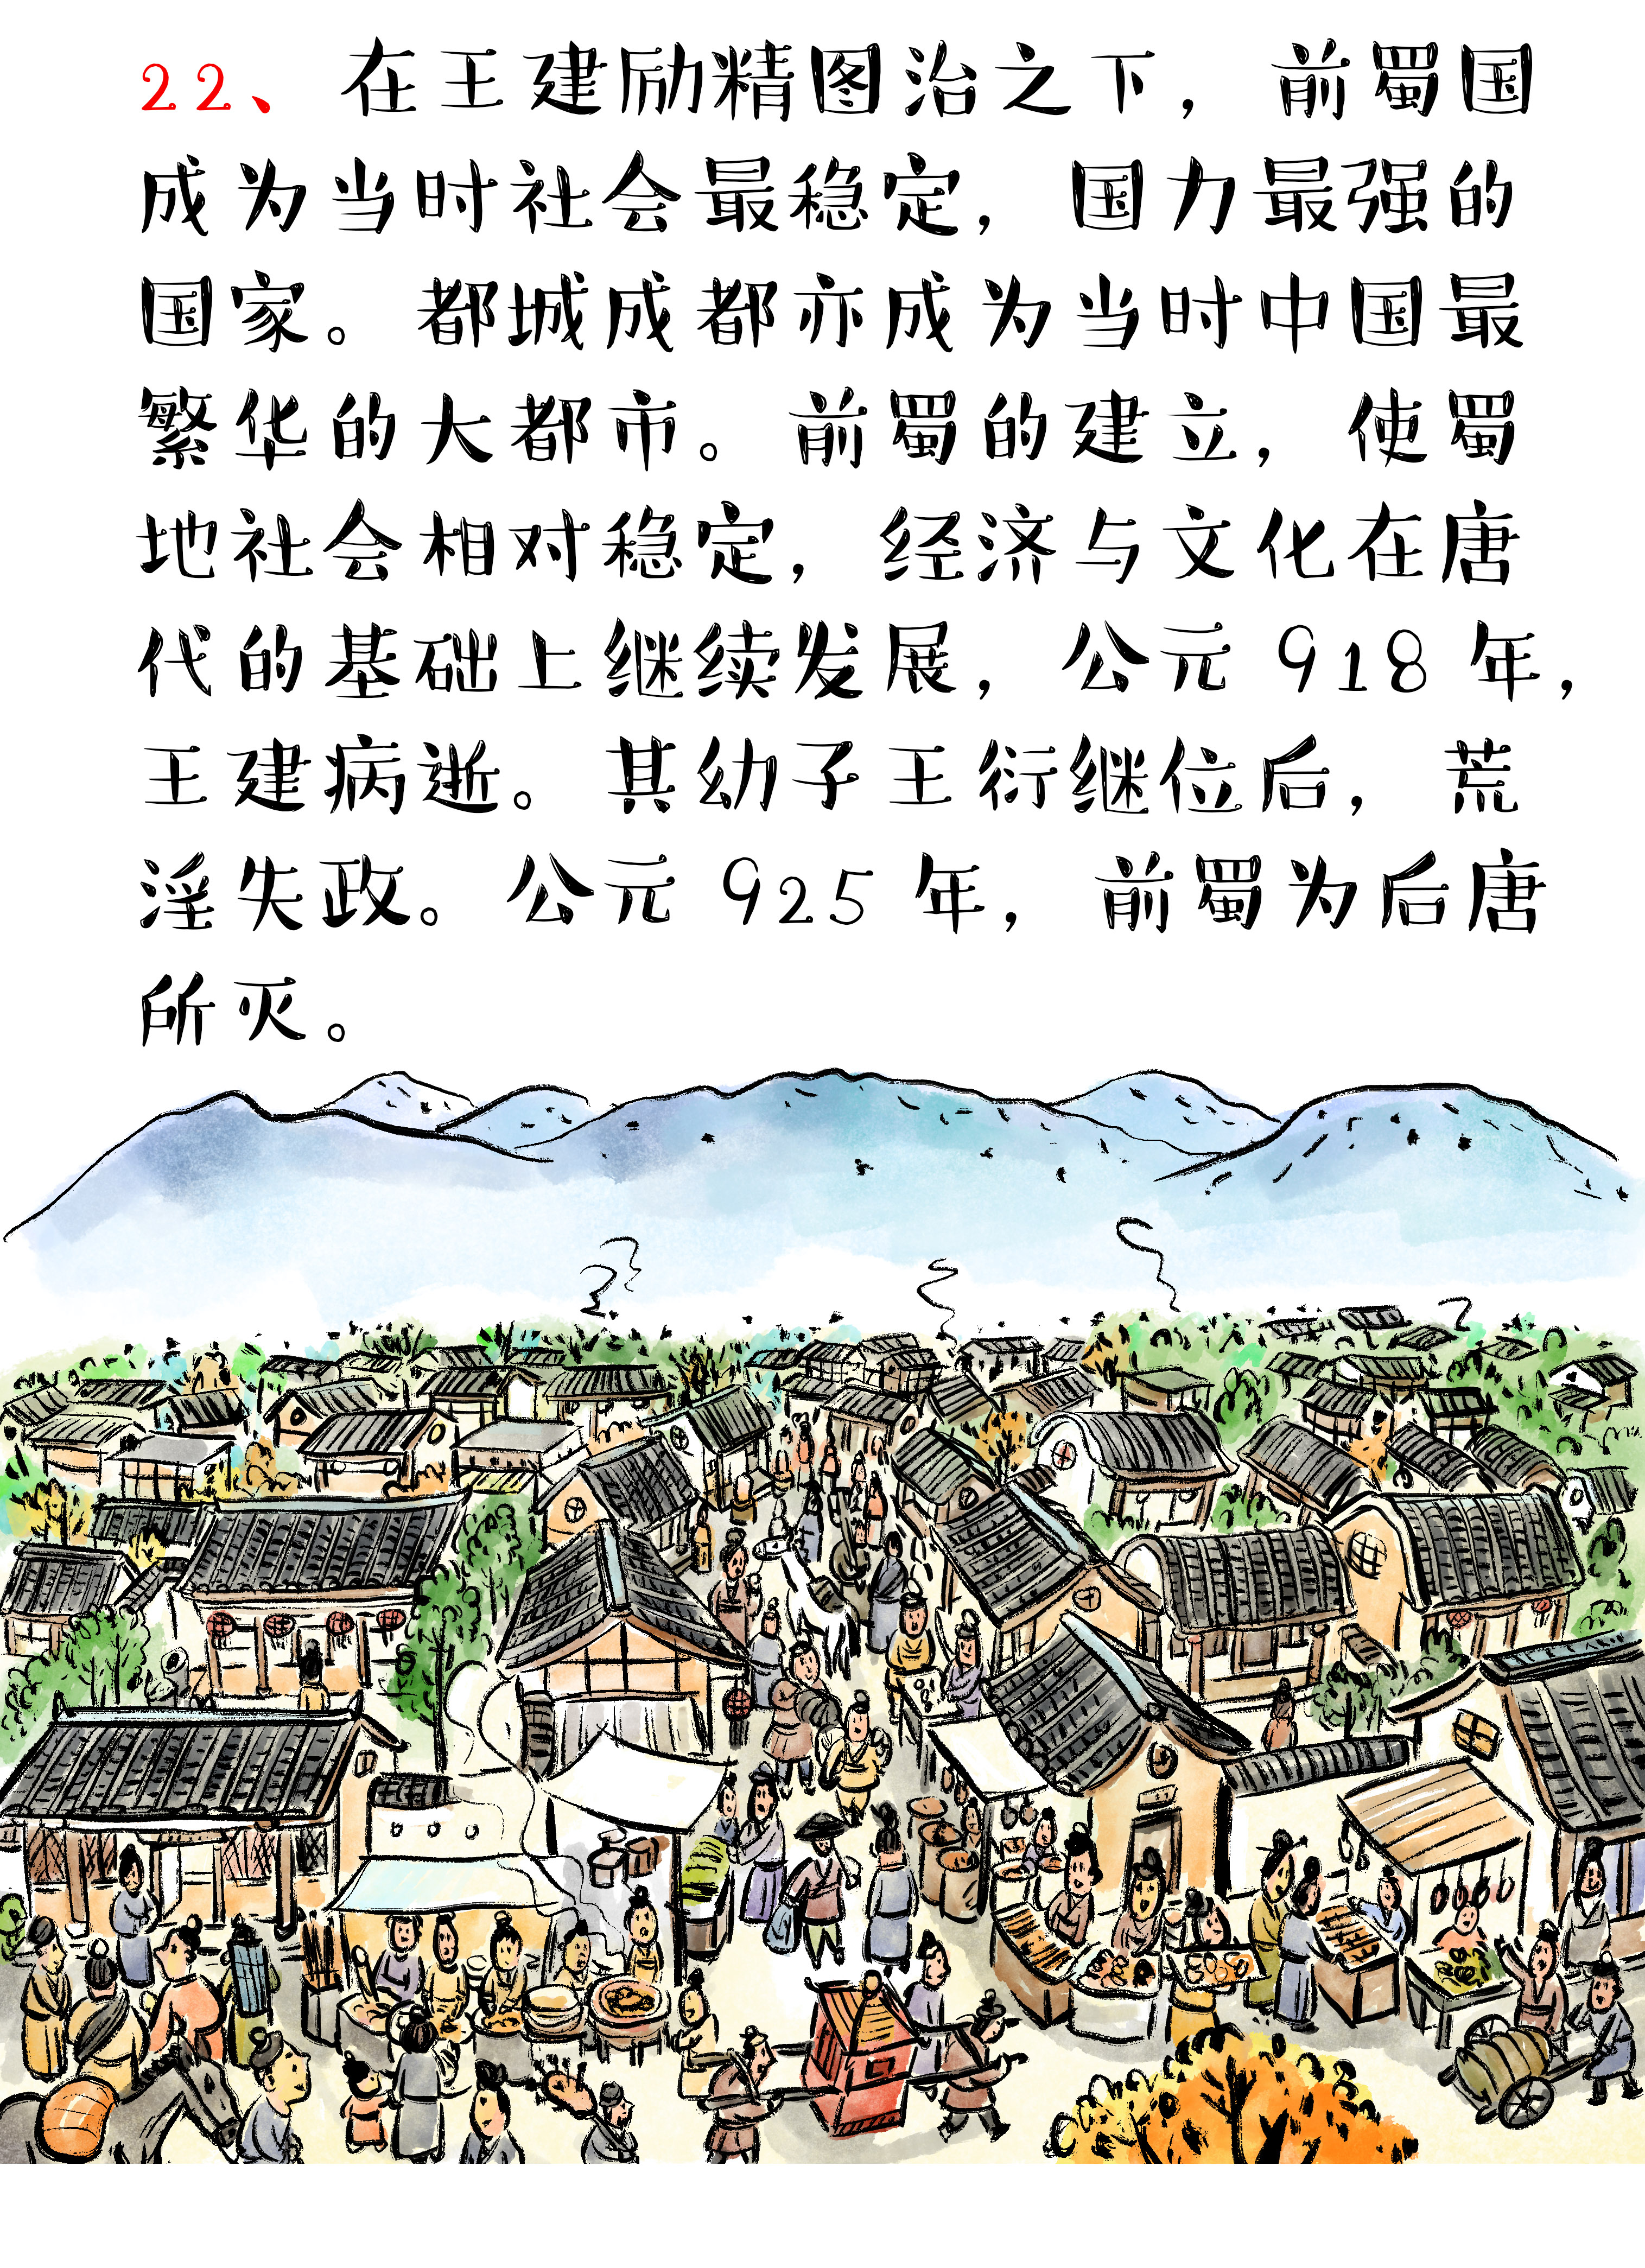 22、在王建励精图治之下，前蜀国
成为当时社会最稳定，国力最强的
国家。都城成都亦成为当时中国最
繁华的大都市。前蜀的建立，使蜀
地社会相对稳定，经济与文化在唐
代的基础上继续发展，公元 918 年，
王建病逝。其幼子王衍继位后，荒
淫失政。公元 925 年，前蜀为后唐
所灭。